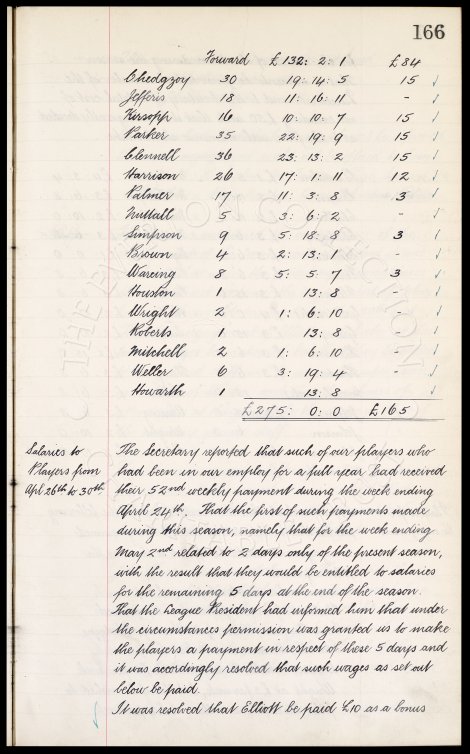 166
Forward £132: 2: 1 £84
Chedgzoy 30 19: 14: 5 15 ✓
Jefferis 18 11: 16: 11 - ✓
Kirsopp 16 10: 10: 7 15 ✓
Parker 35 22: 19: 9 15 ✓
Clennell 36 23: 13: 2 15 ✓
Harrison 26 17: 1: 11 12 ✓
Palmer 17 11: 3: 8 3 ✓
Nuttall 5 3: 6: 2 - ✓
Simpson 9 5: 18: 8 3 ✓
Brown 4 2: 13: 1 - ✓
Wareing 8 5: 5: 7 3 ✓
Houston 1 13: 8 ✓
Wright 2 1: 6: 10 - ✓
Roberts 1 13: 8 ✓
Mitchell 2 1: 6: 10 - ✓
Weller 6 3: 19: 4 - ✓
Howarth 1 13: 8 ✓
£275: 0: 0 £165
Salaries to
Players from
Apl. 26th to 30th
The Secretary reported that such of our players who
had been in our employ for a full year had received
their 52nd weekly payment during the week ending
April 24th. That the first of such payments made
during this season, namely that for the week ending
May 2nd related to 2 days only of the present season,
with the result that they would be entitled to salaries
for the remaining 5 days at the end of the season.
That the League President had informed him that under
the circumstances permission was granted us to make
the players a payment in respect of these 5 days and
it was accordingly resolved that such wages as set out
below be paid.
It was resolved that Elliott be paid £10 as a bonus